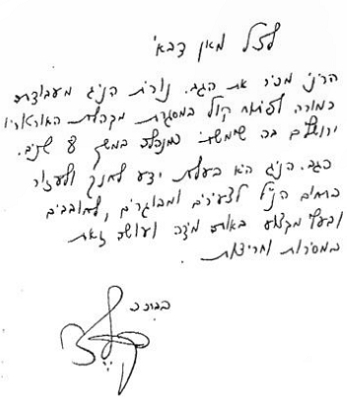 לכל מאן דבעי
הריני מכיר את הגב. נורית הניג מעבודתה
כמורה לפיתוח קול במסגרת מקהלת האורטוריו
ירושלים בה שימשתי כמנצח במשך 8 שנים.
הגב. הניג היא בעלת ידע לחנך ולעזור
בתחום הנ"ל לצעירים ומבוגרים, לחובבים
ובעלי מקצוע באותה מידה ועושה זאת
במסירות וחריצות.
בברכה